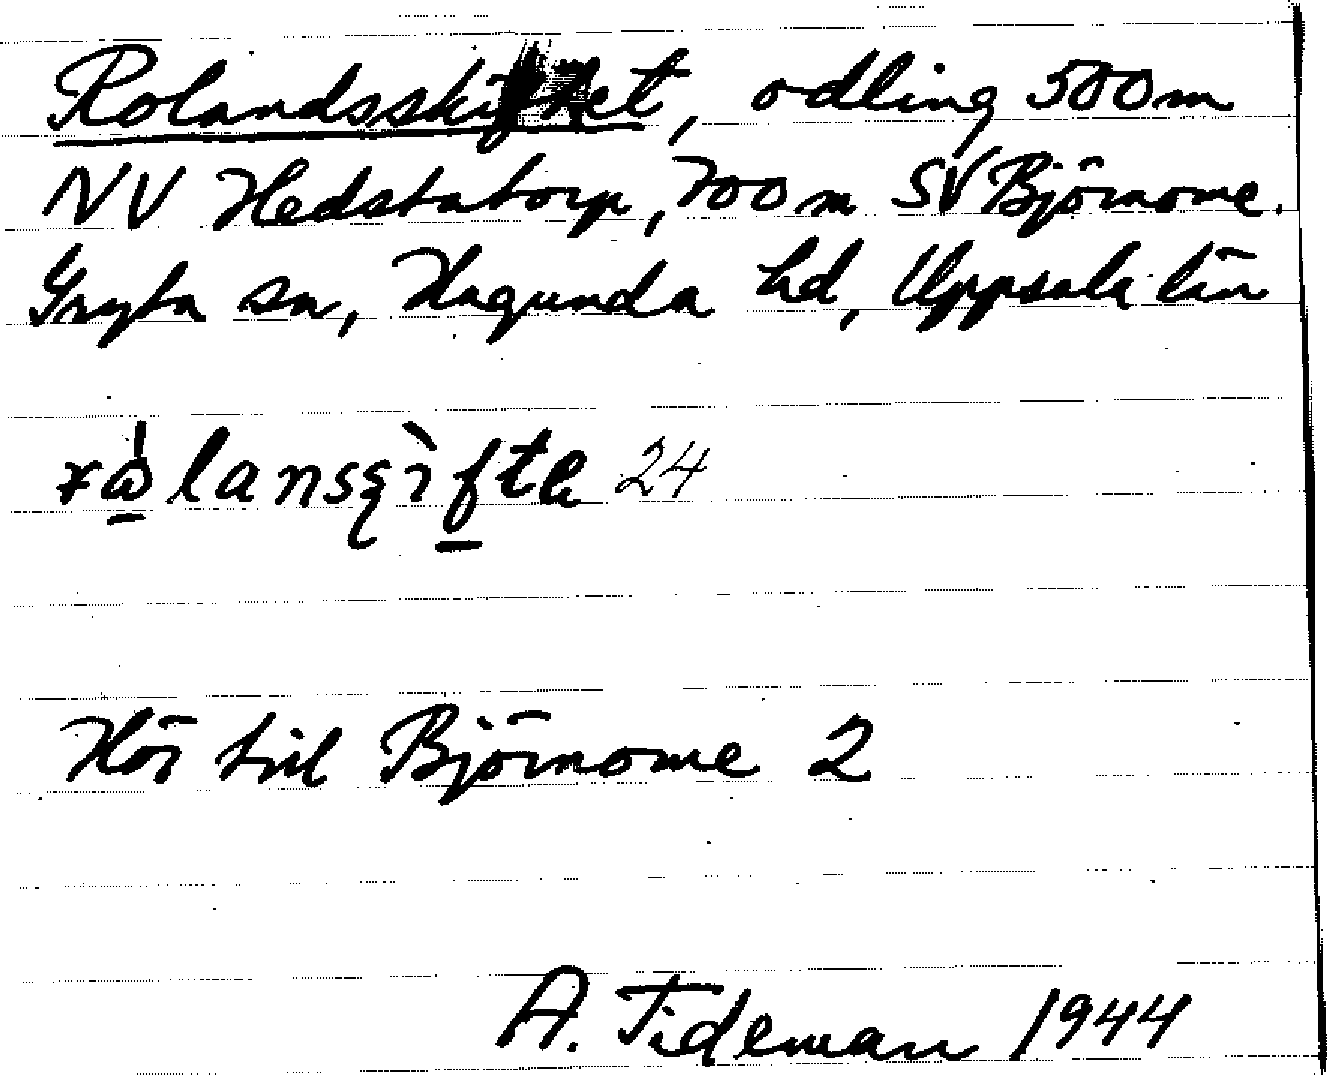 Rolandsskiftet, odling 500 m
NV Hedstatorp, 700 m SV Björnome.
Gryta sn, Hagunda hd, Uppsala län
24
Hör till Björnome 2
A. Tideman 1944